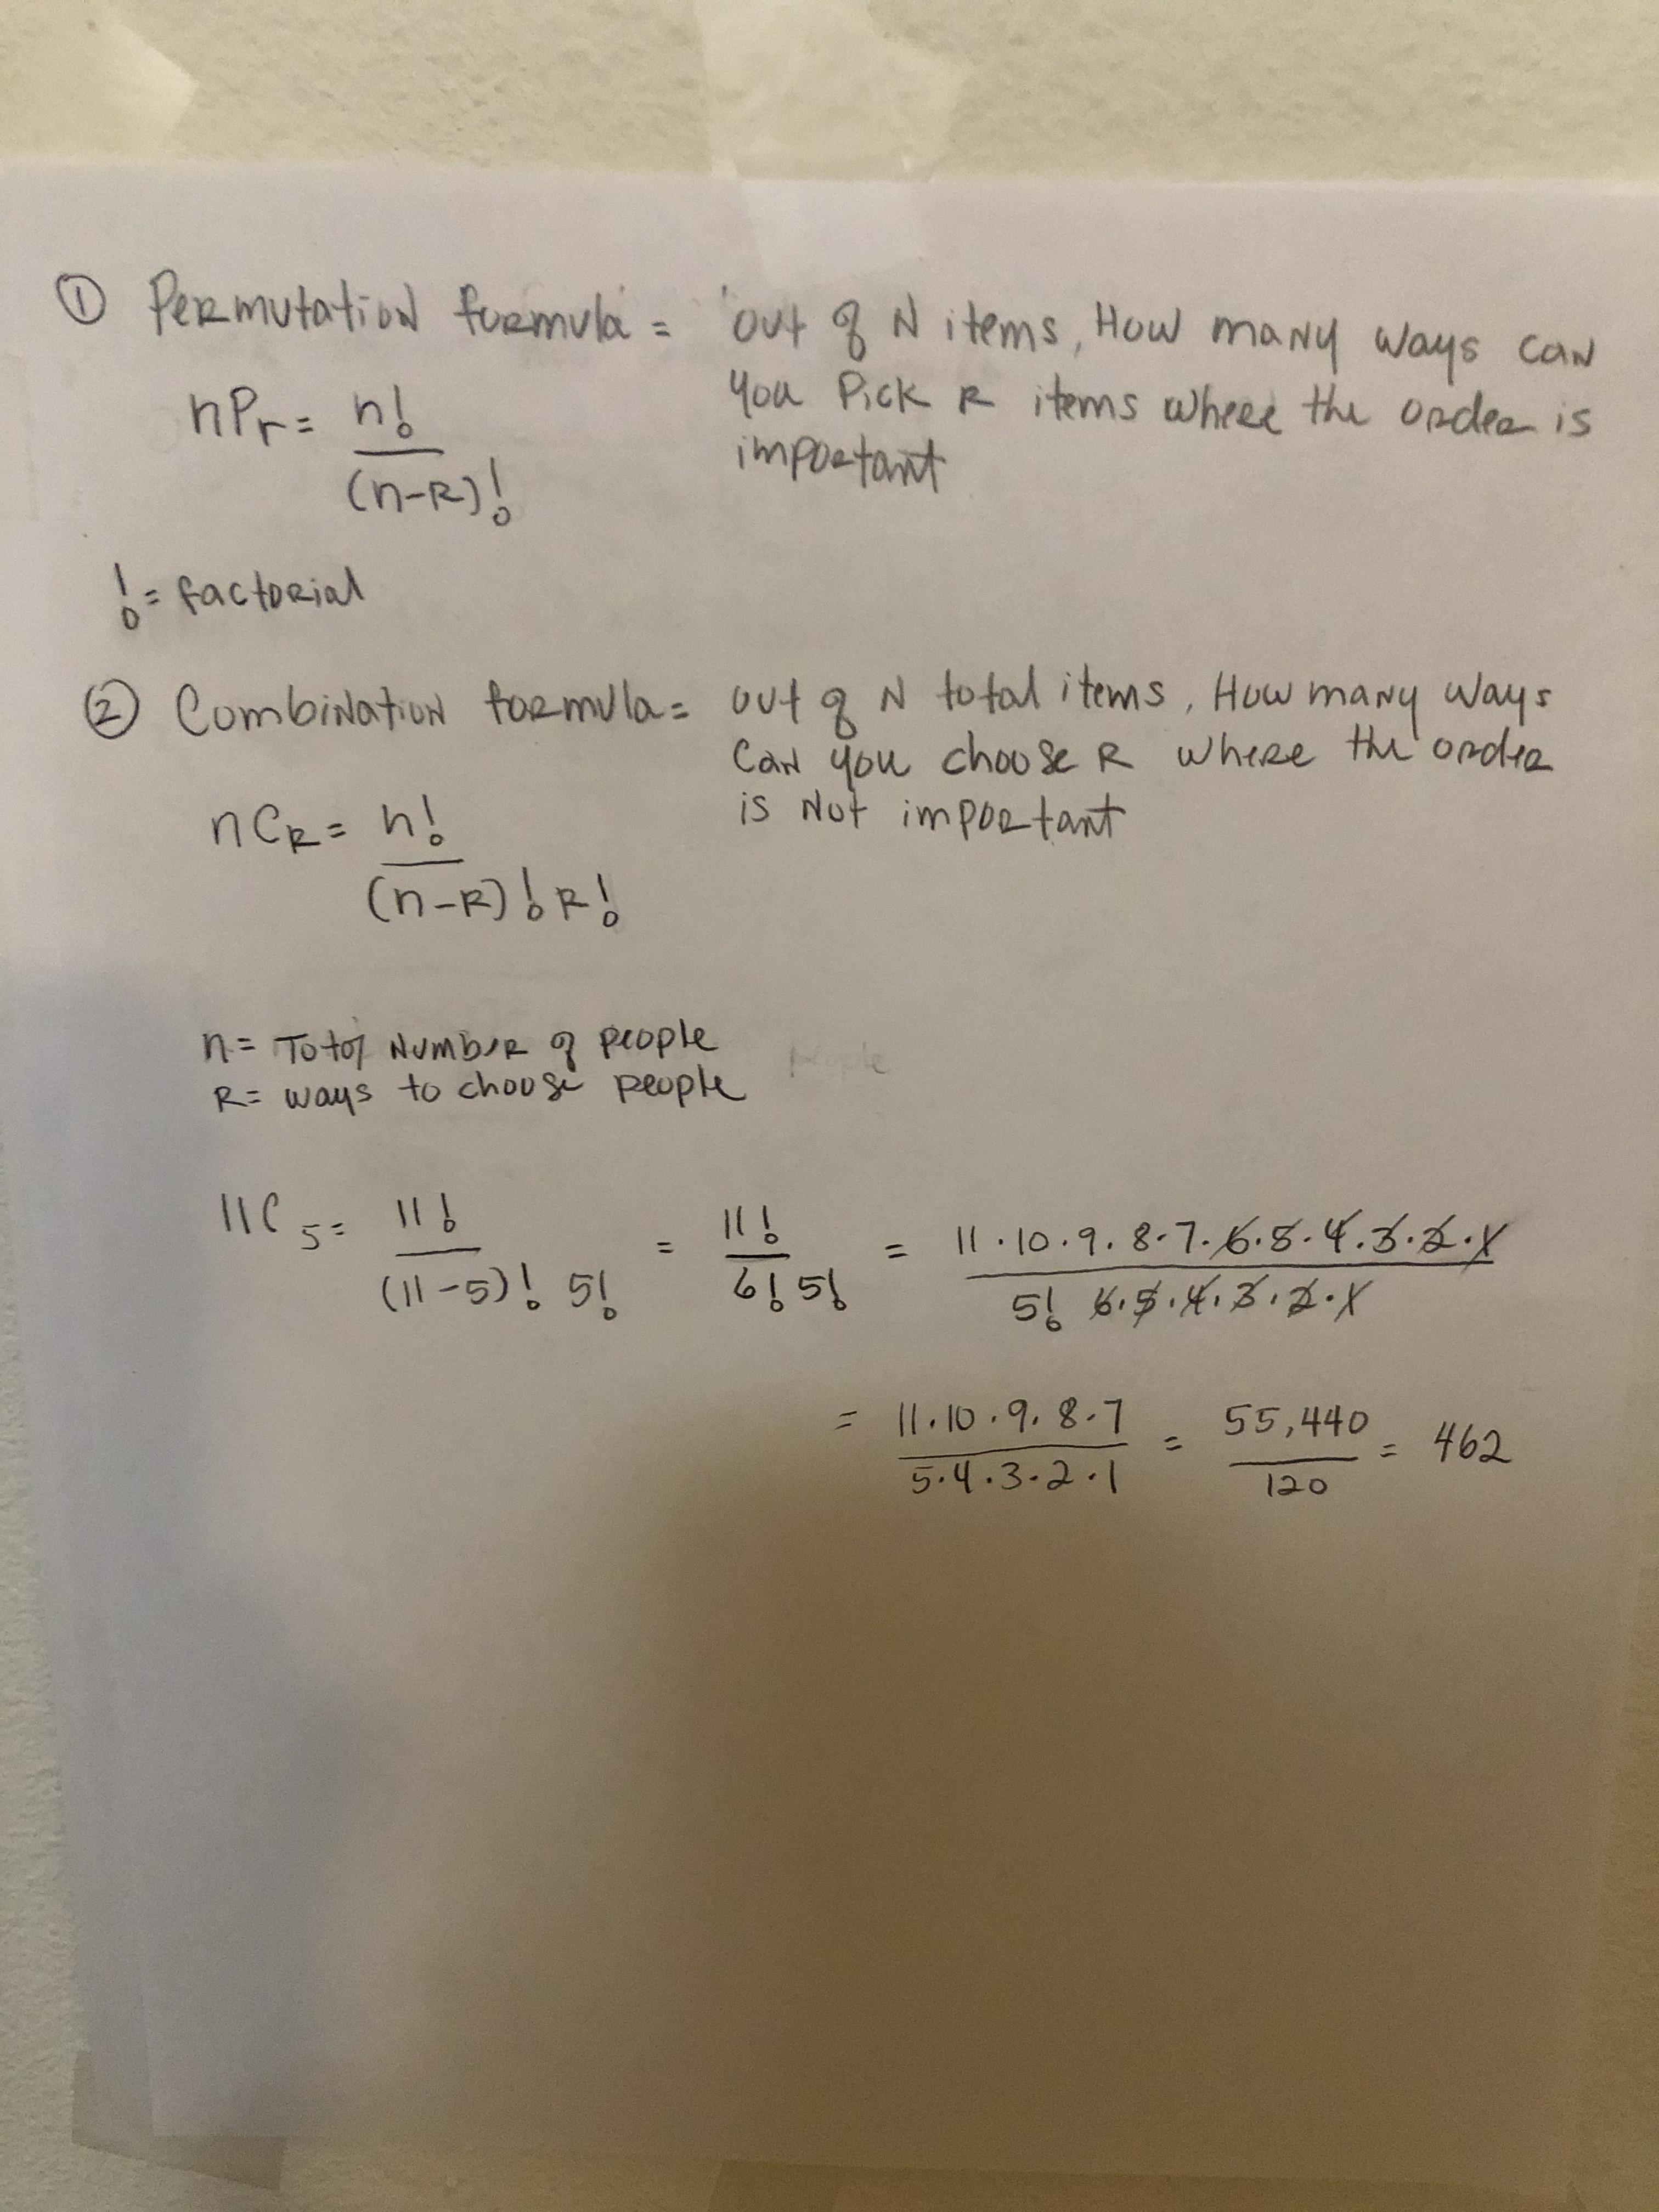 ① Permutation formula = out of N items, How many ways can
you Pick R items where the order is
important
nPr = n!
(n-R)!
! = factorial
② Combination formula = out of N total items, How many ways
can you choose R where the order
is Not important
nCR = n!
(n-R)! R!
n = Total Number of people
R = ways to choose people
11C5 = 11! = 11! = 11·10·9·8·7·6·5·4·3·2·1
(11-5)! 5! 6! 5! 5! 6·5·4·3·2·1
= 11·10·9·8·7 = 55,440 = 462
5·4·3·2·1 120